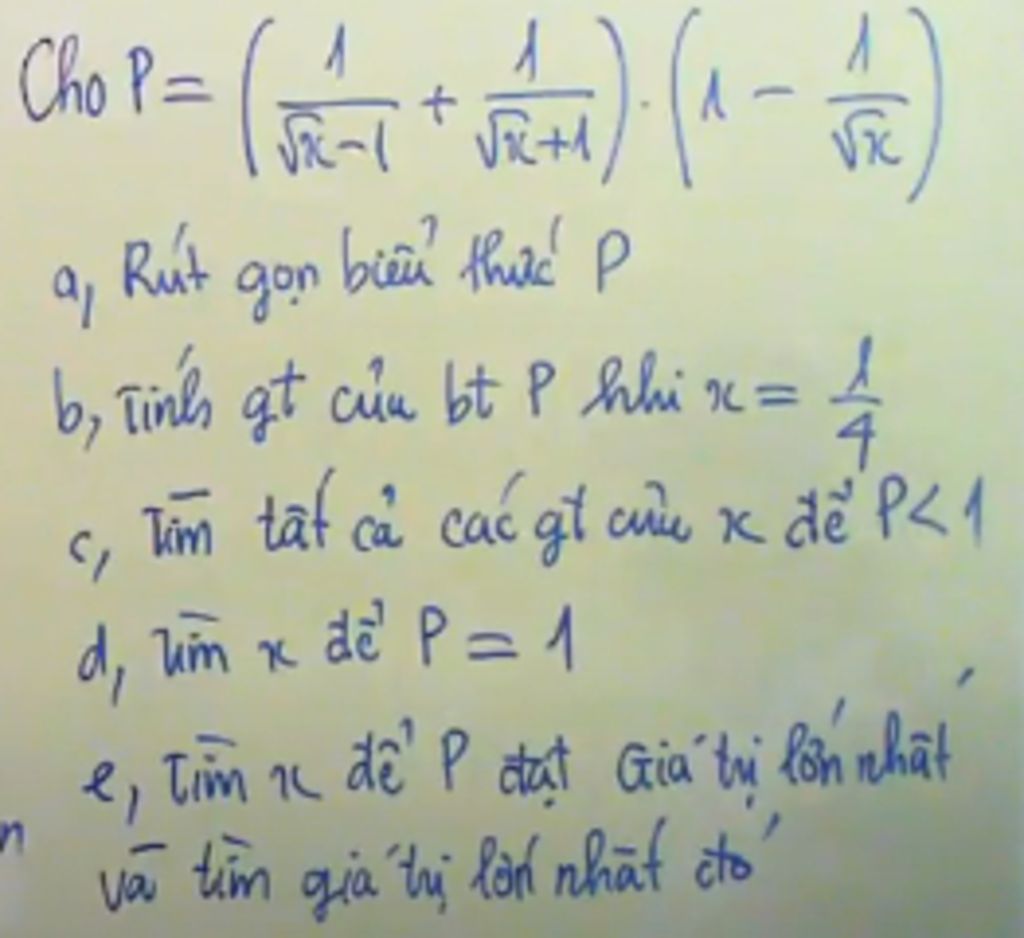 Cho P = (1/(√x−1) + 1/(√x+1)) . (1 − 1/√x)
a, Rút gọn biểu thức P
b, Tính gt của bt P khi x = 1/4
c, Tìm tất cả các gt của x để P < 1
d, Tìm x để P = 1
e, Tìm x để P đạt Giá trị lớn nhất
và tìm giá trị lớn nhất đó